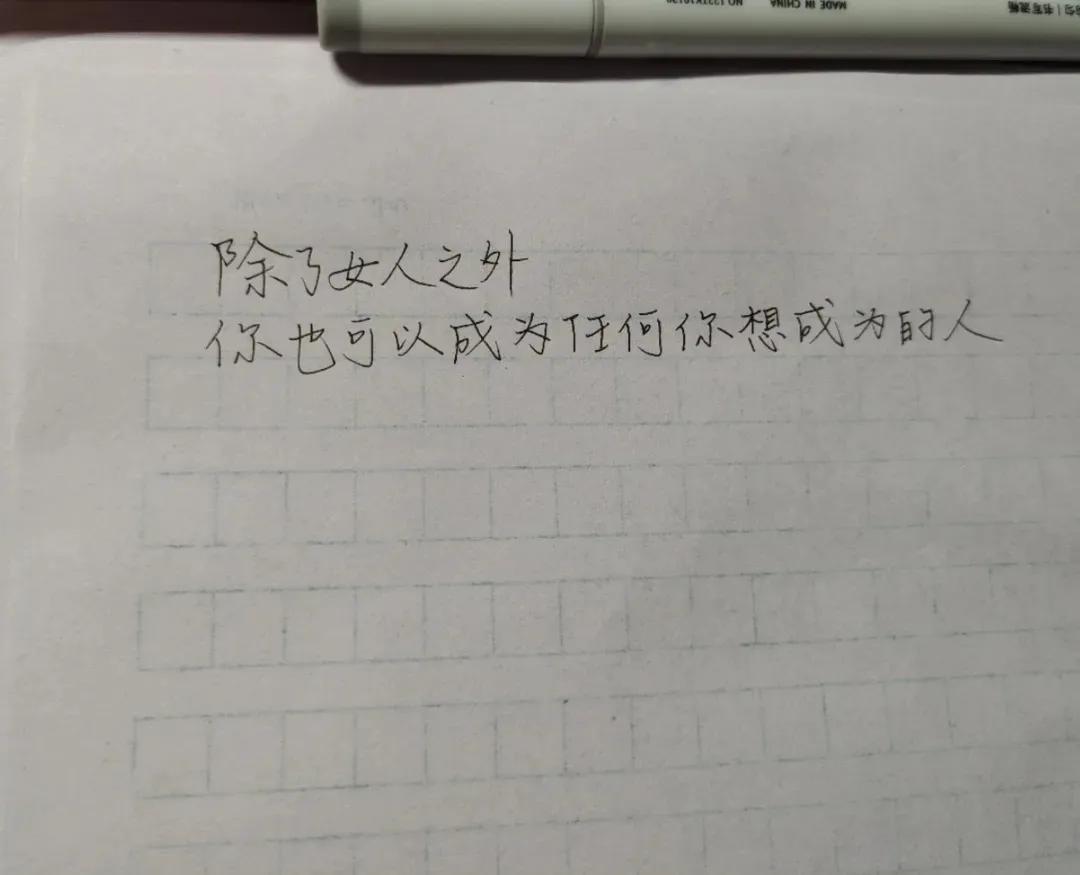 MADE IN CHINA
除了女人之外
你也可以成为任何你想成为的人